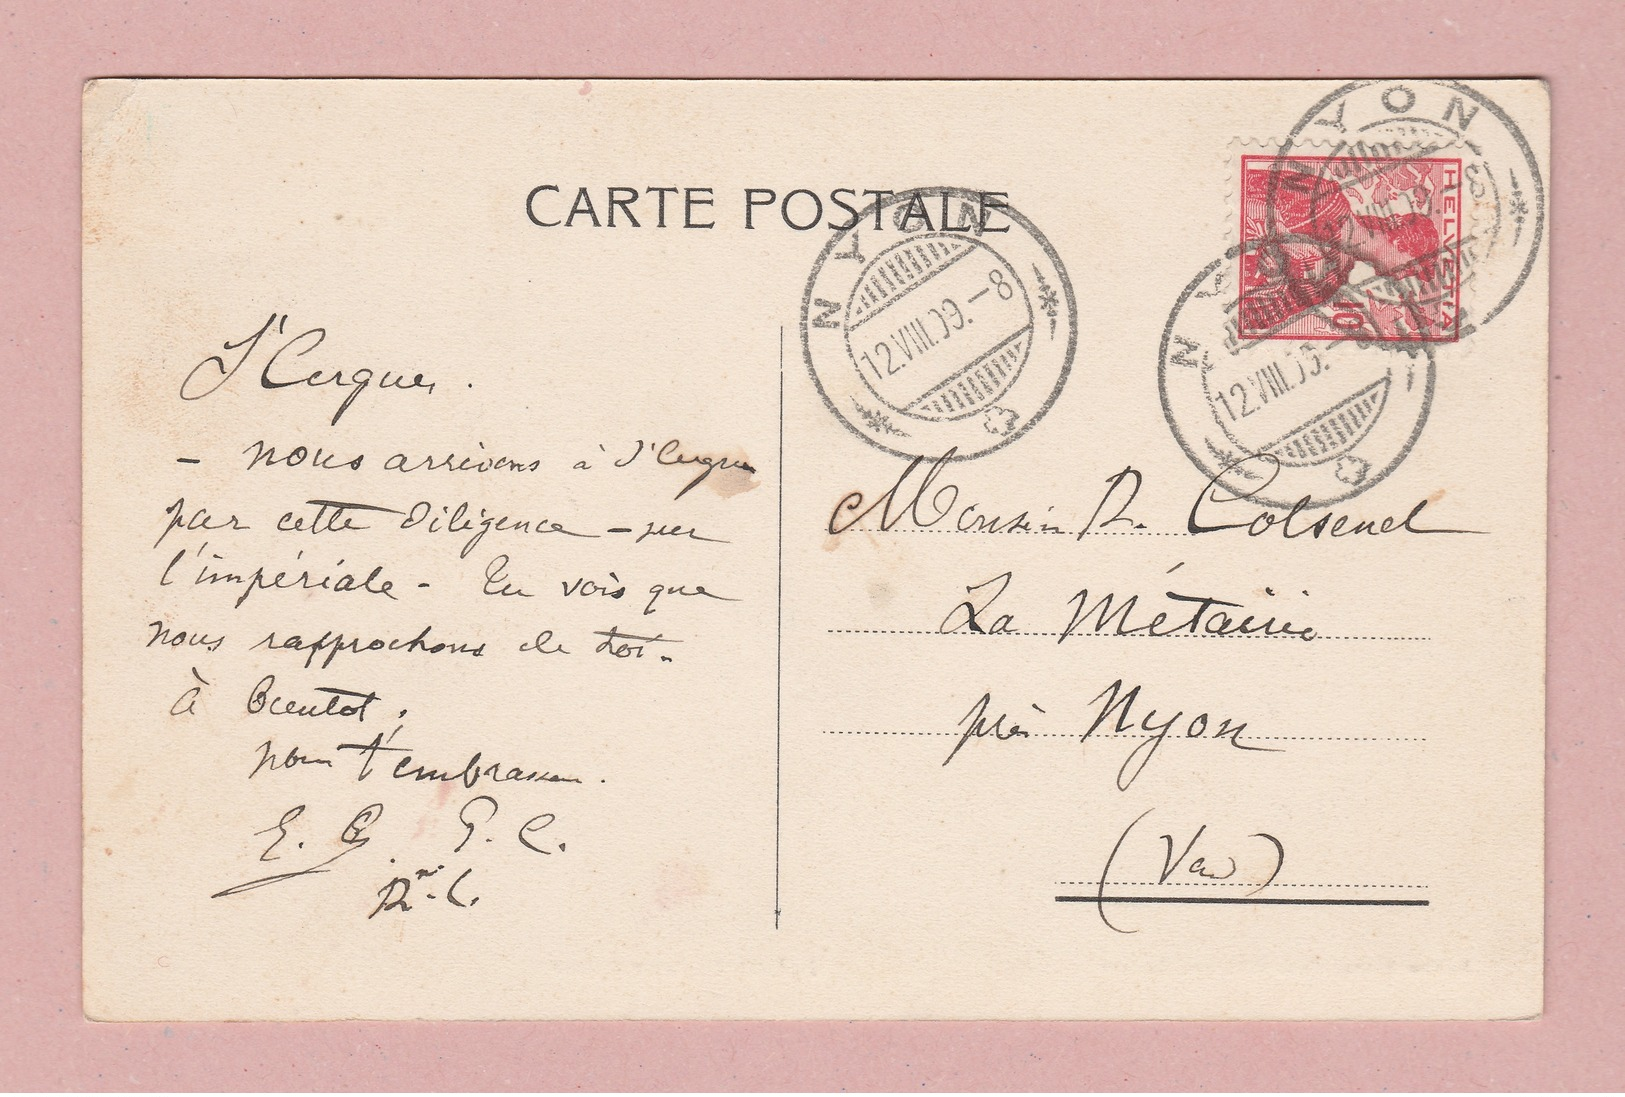 CARTE POSTALE
NYON
12.VIII.09.-8
NYON
12.VIII.09.
NYON
12.VIII.09.
8
HELVETIA
10
St Cergues.
- nous arrivons à St Cergues
par cette diligence - sur
l'impériale - Tu vois que
nous rapprochons de toi.
à bientot.
nous t'embrassons.
E. C. G. C.
R. C.
Monsieur R. Colsenet
La Métairie
près Nyon
(Vaud)